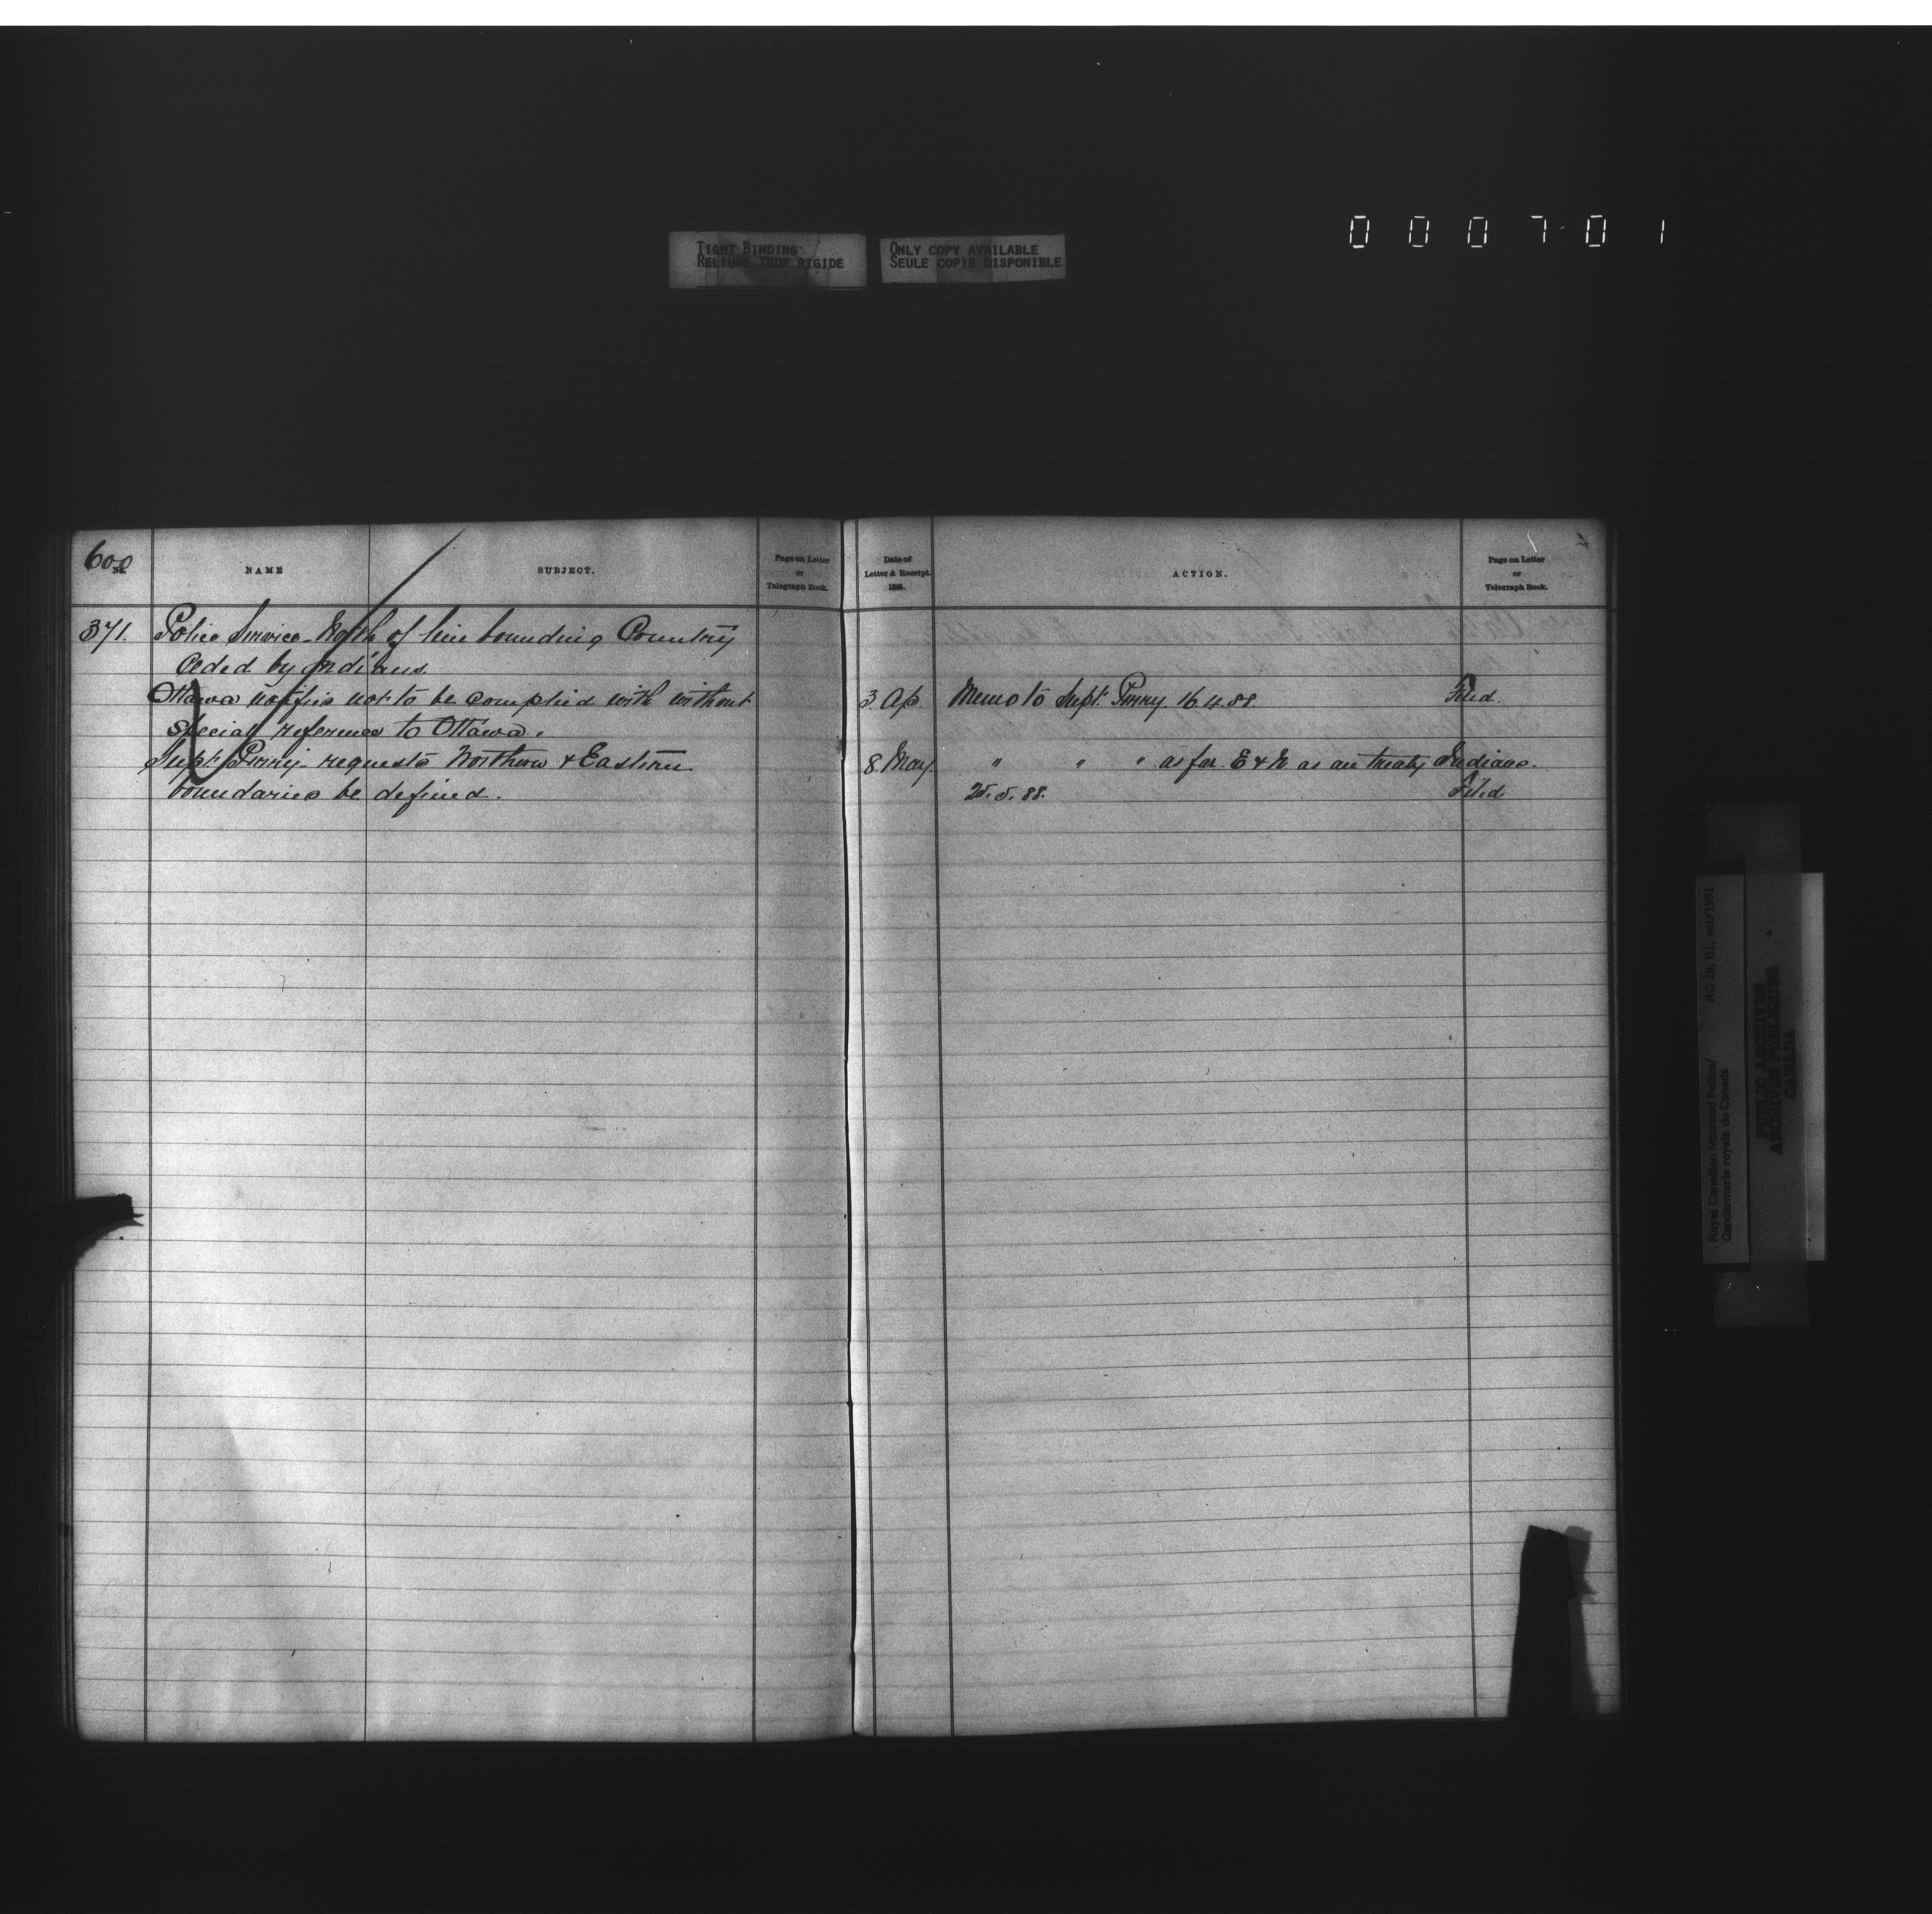 TIGHT BINDING
RELIURE TROP RIGIDE
ONLY COPY AVAILABLE
SEULE COPIE DISPONIBLE
000701
600
No.
NAME
SUBJECT.
Page on Letter
or
Telegraph Book.
Date of
Letter & Receipt.
188
ACTION.
Page on Letter
or
Telegraph Book.
371. Police Service - North of line bounding Country
Ceded by Indians.
Ottawa notifies not to be complied with without 3. Ap. Memo to Supt. Perry 16.4.88. Filed.
special reference to Ottawa.
Supt. Perry requests Northern & Eastern 8. May. " " " as far E & N. as are treaty Indians.
boundaries be defined. 25.5.88. Filed
Royal Canadian Mounted Police/
Gendarmerie royale du Canada
RG 18, B1, vol/1991
PUBLIC ARCHIVES
ARCHIVES PUBLIQUES
CANADA